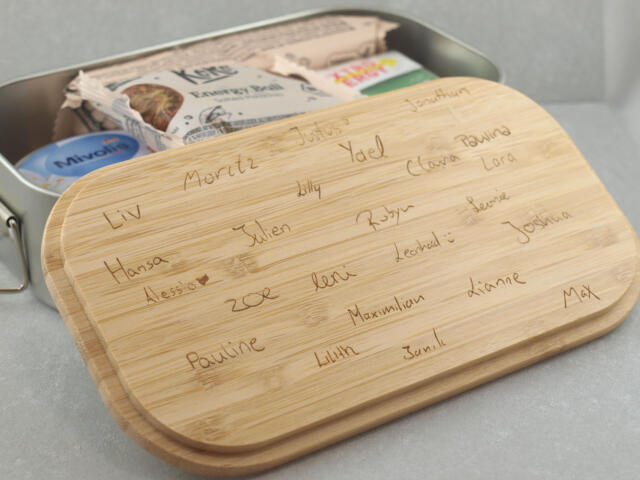 KEKS
Energy Ball
Mivolis
Jonathan
Justus
Moritz
Yael
Clara
Paulina
Lara
Lilly
Liv
Julien
Robyn
Leonie
Hansa
Alessio
Zoe
leni
Leonhard :)
Joshua
Maximilian
Lianne
Max
Pauline
Lilith
Janik